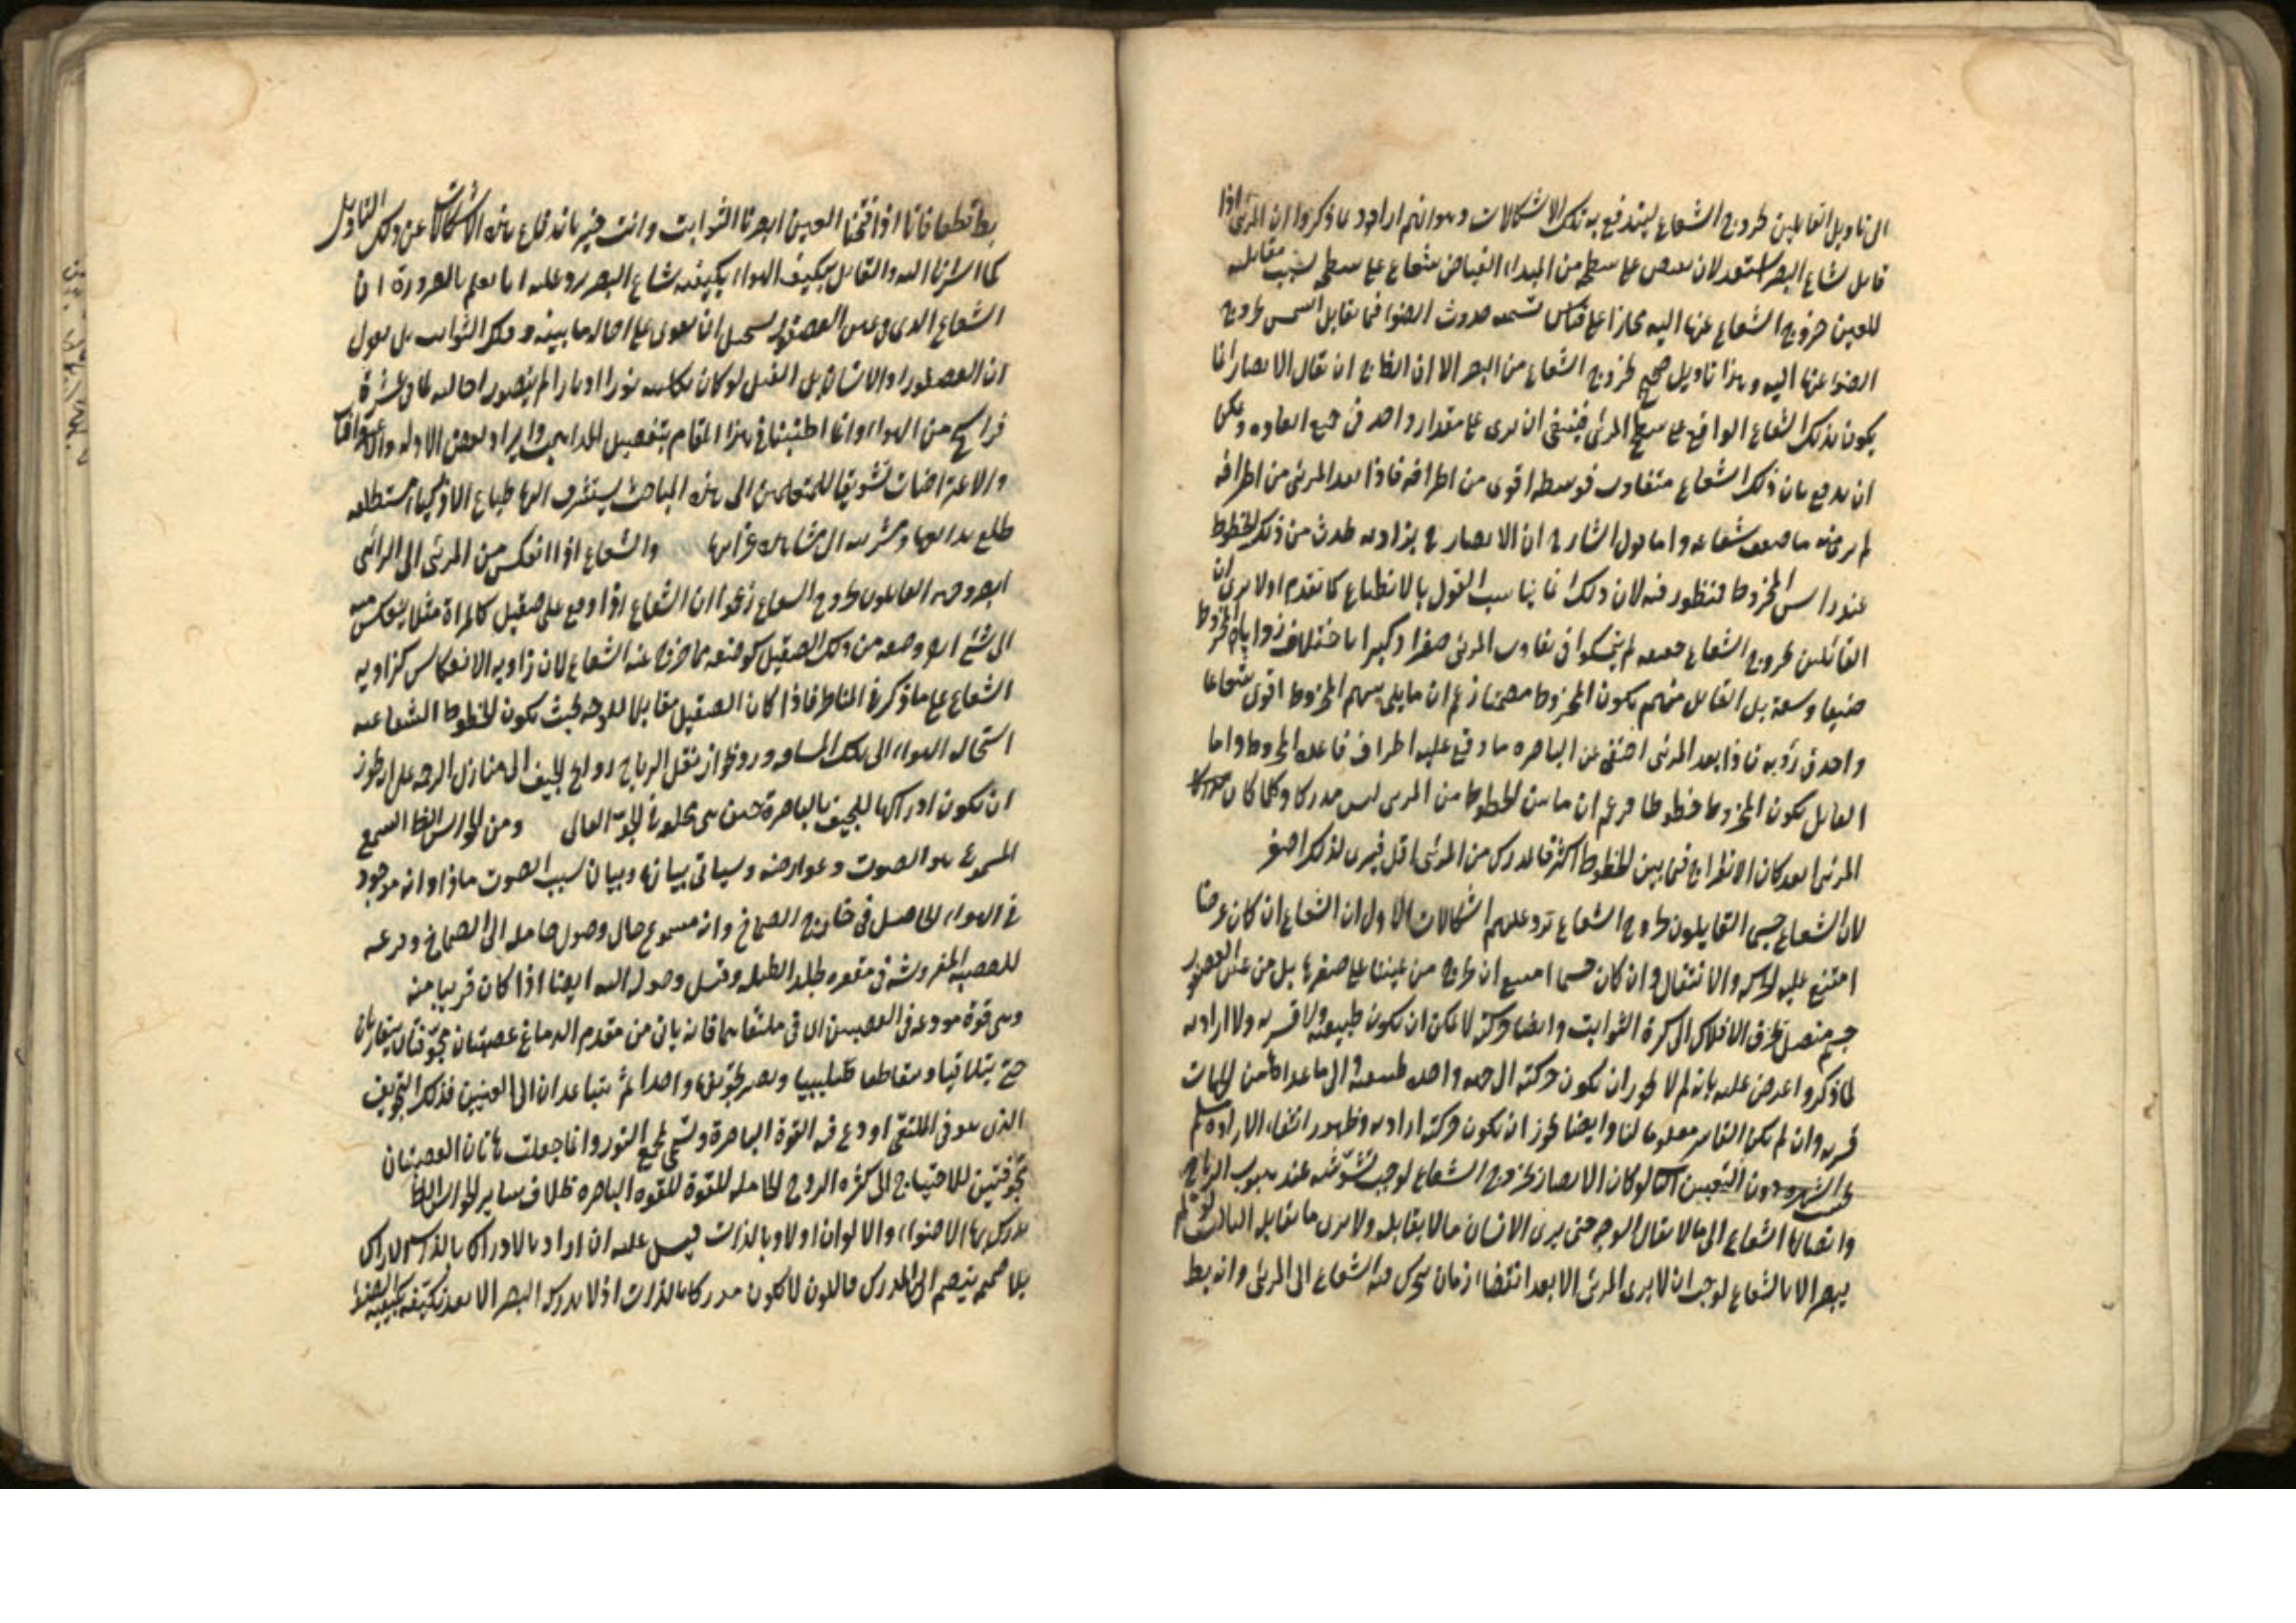 الى تاويل القايلين بخروج الشعاع ليندفع به تلك الاشكالات وهو انهم ارادوا بما ذكروا ان المرئى اذا
قابل شعاع البصر استعد لان يفيض على سطحه من المبداء الفياض شعاع على سطحه بسبب مقابلته
للعين خروج الشعاع عنها اليه مجازا على قياس تسمية حدوث الضوء فيما يقابل الشمس بخروج
الضوء عنها اليه وهذا تاويل صحيح لخروج الشعاع من البصر الا ان الظاهر ان يقال الابصار انما
يكون بذلك الشعاع الواقع على سطح المرئى فينبغى ان يرى على مقدار واحد فى جميع ويمكن
ان يدفع بان ذلك الشعاع متفاوت فوسطه اقوى من اطرافه فاذا بعد المرئى من اطرافه
لم ير منه ما ضعف شعاعه واما قول الشارح ان الابصار بزاوية تحدث من ذلك الخطوط
عند راس المخروط فمنظور فيه لان ذلك انما يناسب القول بالانطباع كما تقدم اولا يرى ان
القائلين بخروج الشعاع حقيقة لم يتمسكوا فى تفاوت المرئى صغرا وكبرا باختلاف زوايا المخروط
ضيقا وسعة بل القايل منهم بكون المخروط مصمتا زعم ان ما يلى سهم المخروط اقوى شعاعا
واحد فى رؤيه فاذا بعد المرئى اختفى عن الباصره ما وقع عليه اطراف قاعدة المخروط واما
القايل بكون المخروط خطوطا فزعم ان ما بين الخطوط من المرئى ليس مدركا وكلما كان
المرئى ابعد كان الانفراج فيما بين الخطوط اكثر فالمدرك من المرئى اقل فيرى لذلك اصغر
لان الشعاع جسم القايلون بخروج الشعاع ترد عليهم اشكالات الاول ان الشعاع ان كان عرضا
امتنع عليه الحركه والانتقال وان كان جسما امتنع ان يخرج من عيننا على صغرها بل من عين العصفور
جسم متصل يخرق الافلاك الى كرة الثوابت وايضا حركته لا يمكن ان تكون طبيعية ولا قسريه ولا اراديه
لما ذكروا اعترض عليه بانه لم لا يجوز ان تكون حركته الى جهة واحدة طبيعية والى ما عداها من الجهات
قسريه وان لم يكن القاسر معلوما لنا وايضا يجوز ان تكون حركته اراديه وظهور انتفاء الاراده
بحسب الشهره دون اليقين الثانى لو كان الابصار بخروج الشعاع لوجب تشوشه عند هبوب الرياح
واتصال الشعاع الى ما لا يقابل الوجه حتى يرى الانسان ما لا يقابله ولا يرى ما يقابله الثالث لو لم
يبصر الا بالشعاع لوجب ان لا يرى المرئى الا بعد انقضاء زمان يتحرك فيه الشعاع الى المرئى وانه بط
بط قطعا فانا اذا فتحنا العين ابصرنا الثوابت وانت خبير باندفاع هذه الاشكالات عن ذلك التاويل
كما اشرنا اليه والقايل بتكيف الهواء بكيفية شعاع البصر يرد عليه انا نعلم بالضرورة ان
الشعاع الذى فى عين العصفور يستحيل ان يقوى على احالة ما بينه وفلك الثوابت بل نقول
ان العصفور او الانسان بل الفيل لو كان بكليته نورا او نارا لم يتصور احالته لما فى عشرة
فراسخ من الهواء وانما اطنبنا فى هذا المقام بتفصيل المذاهب وايراد بعض الادله
والاعتراضات تشويقا للمتعلمين الى هذه المباحث يستشرف اليها طباع الاذكياء استطلاعه
والشعاع اذا انعكس من المرئى الى الرائى
ابصر وجهه القايلون بخروج الشعاع زعموا ان الشعاع اذا وقع على صقيل كالمراة مثلا ينعكس منه
الى شئ اخر وضعه من ذلك الصقيل كوضعه مما خرج عنه الشعاع لان زاويه الانعكاس كزاويه
الشعاع على ما ذكر فى المناظر فاذا كان الصقيل مقابلا للوجه بحيث تكون الخطوط الشعاعيه
استحاله الهواء الى تلك المسافه وروظوا نقل الرياح روايح الجيف الى منازل الرخمه على انه يجوز
ان تكون ادراكها للجيف بالباصرة حين هى محلقة فى الجو العالى ومن الحواس الظ السمع
المسموع هو الصوت وعوارضه وسياتى بيانه وبيان سبب الصوت ماذا وانه موجود
فى الهواء الحاصل فى خارج الصماخ وانه مسموع حال وصول حامله الى الصماخ وقرعه
للعصبه المفروشه فى مقعره كجلد الطبله وقبل وصوله اليه ايضا اذا كان قريبا منه
وهى قوة مودعه فى العصبتين الاتى ملتقاهما فانه ياتى من مقدم الدماغ عصبتان مجوفتان يتقاربان
حتى يتلاقيا ويتقاطعا صليبيا ويصير تجويفها واحدا ثم يتباعدان الى العينين فذلك التجويف
الذى هو فى الملتقى اودع فيه القوة الباصرة ويسمى بمجمع النور وانما جعلت هاتان العصبتان
مجوفتين للاحتياج الى كثره الروح الحامله للقوة للقوه الباصره بخلاف ساير الحواس الظ
يدرك بها الاضواء والالوان اولا وبالذات قيل عليه ان اراد بالادراك بالذات الادراك
بلا ضميم ينضم الى المدرك فاللون لا يكون مدركا بالذات اذ لا يدركه البصر الا بعد تكيفه بكيفية الضوء